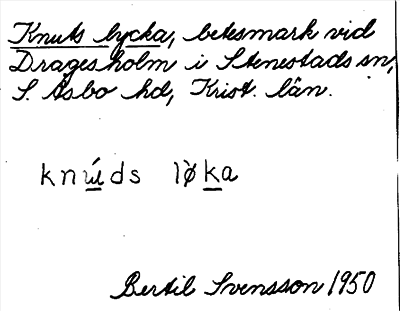 Knuts lycka, betesmark vid
Dragesholm i Stenestads sn,
S. Åsbo hd, Krist. län.
knúds lỳka
Bertil Svensson 1950